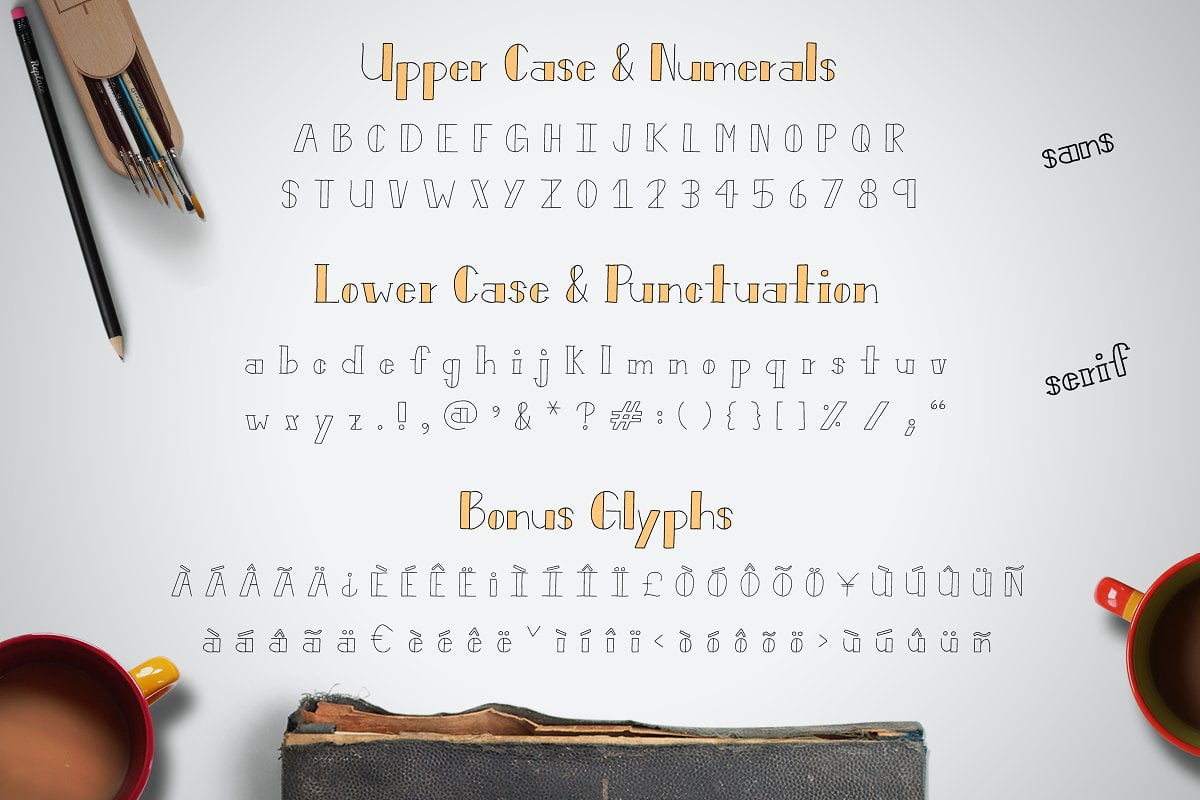 Upper Case & Numerals
A B C D E F G H I J K L M N O P Q R
S T U V W X Y Z 0 1 2 3 4 5 6 7 8 9
sans
Lower Case & Punctuation
a b c d e f g h i j k l m n o p q r s t u v
w x y z . ! , @ ’ & * ? # : ( ) { } [ ] % / ; “
serif
Bonus Glyphs
À Á Â Ã Ä ¿ È É Ê Ë ¡ Ì Í Î Ï £ Ò Ó Ô Õ Ö ¥ Ù Ú Û Ü Ñ
à á â ã ä € è é ê ë ˇ ì í î ï < ò ó ô õ ö > ù ú û ü ñ